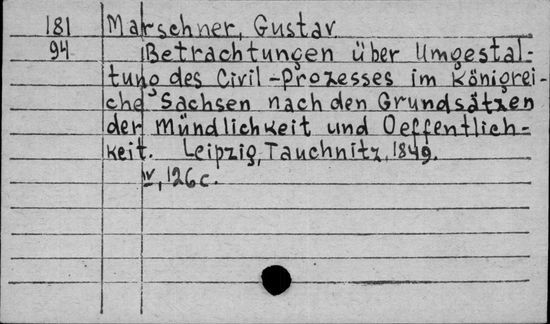 181 Marschner, Gustav
94 Betrachtungen über Umgestal-
tung des Civil-Prozesses im Königrei-
che Sachsen nach den Grundsätzen
der Mündlichkeit und Oeffentlich-
keit. Leipzig, Tauchnitz, 1849.
IV, 126 c.